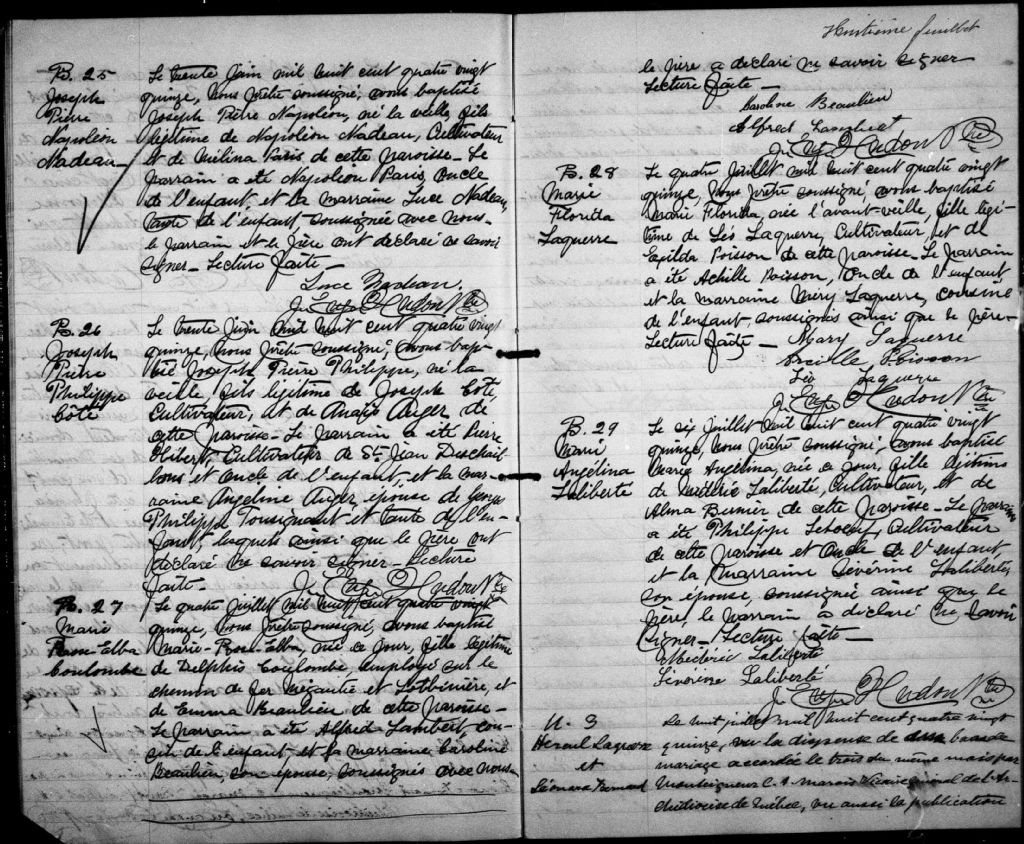 B. 25
Joseph
Pierre
Napoléon
Nadeau
Le trente juin mil huit cent quatre vingt
quinze, nous prêtre soussigné, avons baptisé
Joseph Pierre Napoléon, né la veille, fils
légitime de Napoléon Nadeau, Cultivateur
et de Mélina Paris de cette paroisse - Le
parrain a été Napoléon Paris, oncle
de l'enfant et la marraine Luce Nadeau,
tante de l'enfant soussignée avec nous.
le parrain et le père ont déclaré ne savoir
signer - Lecture faite -
Luce Nadeau.
Hudon Ptre
B. 26
Joseph
Pierre
Philippe
Côté
Le trente juin mil huit cent quatre vingt
quinze, nous prêtre soussigné, avons bap-
tisé Joseph Pierre Philippe, né la
veille, fils légitime de Joseph Côté,
Cultivateur, et de Anaïs Auger de
cette paroisse - Le parrain a été Pierre
Cultivateur de St Jean Deschail
lons et oncle de l'enfant, et la mar-
raine Angeline Auger, épouse de Georges
Philippe Tousignant et tante de l'en-
fant, lesquels ainsi que le père ont
déclaré ne savoir signer - Lecture
faite -
Hudon Ptre
B. 27
Marie
Rose-Elba
Coulombe
Le quatre juillet mil huit cent quatre vingt
quinze, nous prêtre soussigné, avons baptisé
Marie-Rose-Elba, née ce jour, fille légitime
de Delphis Coulombe employé sur le
chemin de fer Mégantic et Lotbinière, et
de Emma Beaulieu de cette paroisse -
Le parrain a été Alfred Lambert, cou-
sin de l'enfant et la marraine Caroline
Beaulieu, son épouse, soussignés avec nous
Huitième feuillet
le père a déclaré ne savoir signer
Lecture faite -
Caroline Beaulieu
Alfred Lambert
Hudon Ptre
B. 28
Marie
Florida
Laquerre
Le quatre juillet mil huit cent quatre vingt
quinze, nous prêtre soussigné, avons baptisé
Marie Florida, née l'avant-veille, fille légi-
time de Léo Laquerre, Cultivateur et de
Exilda Poisson de cette paroisse. Le parrain
a été Achille Poisson, oncle de l'enfant
et la marraine Méry Laquerre, cousine
de l'enfant, soussignés ainsi que le père -
Lecture faite -
Mary Laquerre
Poisson
Léo Laquerre
Hudon Ptre
B. 29
Marie
Angélina
Laliberté
Le six juillet mil huit cent quatre vingt
quinze, nous prêtre soussigné, avons baptisé
Marie Angélina, née ce jour, fille légitime
de Médéric Laliberté, Cultivateur, et de
Alma Bernier de cette paroisse - Le parrain
a été Philippe Leboeuf, Cultivateur
de cette paroisse et oncle de l'enfant,
et la marraine Sévérine Laliberté,
son épouse, soussignée ainsi que le
père, le parrain a déclaré ne savoir
signer - Lecture faite -
Médéric Laliberté
Séverine Laliberté
Hudon Ptre
M. 3
et
Léonara
Le huit juillet mil huit cent quatre vingt
quinze, vu la dispense de bans de
mariage accordée le trois du même mois par
Monseigneur C. A. Marois Vicaire Général de l'Ar-
chidiocèse de Québec, vu aussi la publication